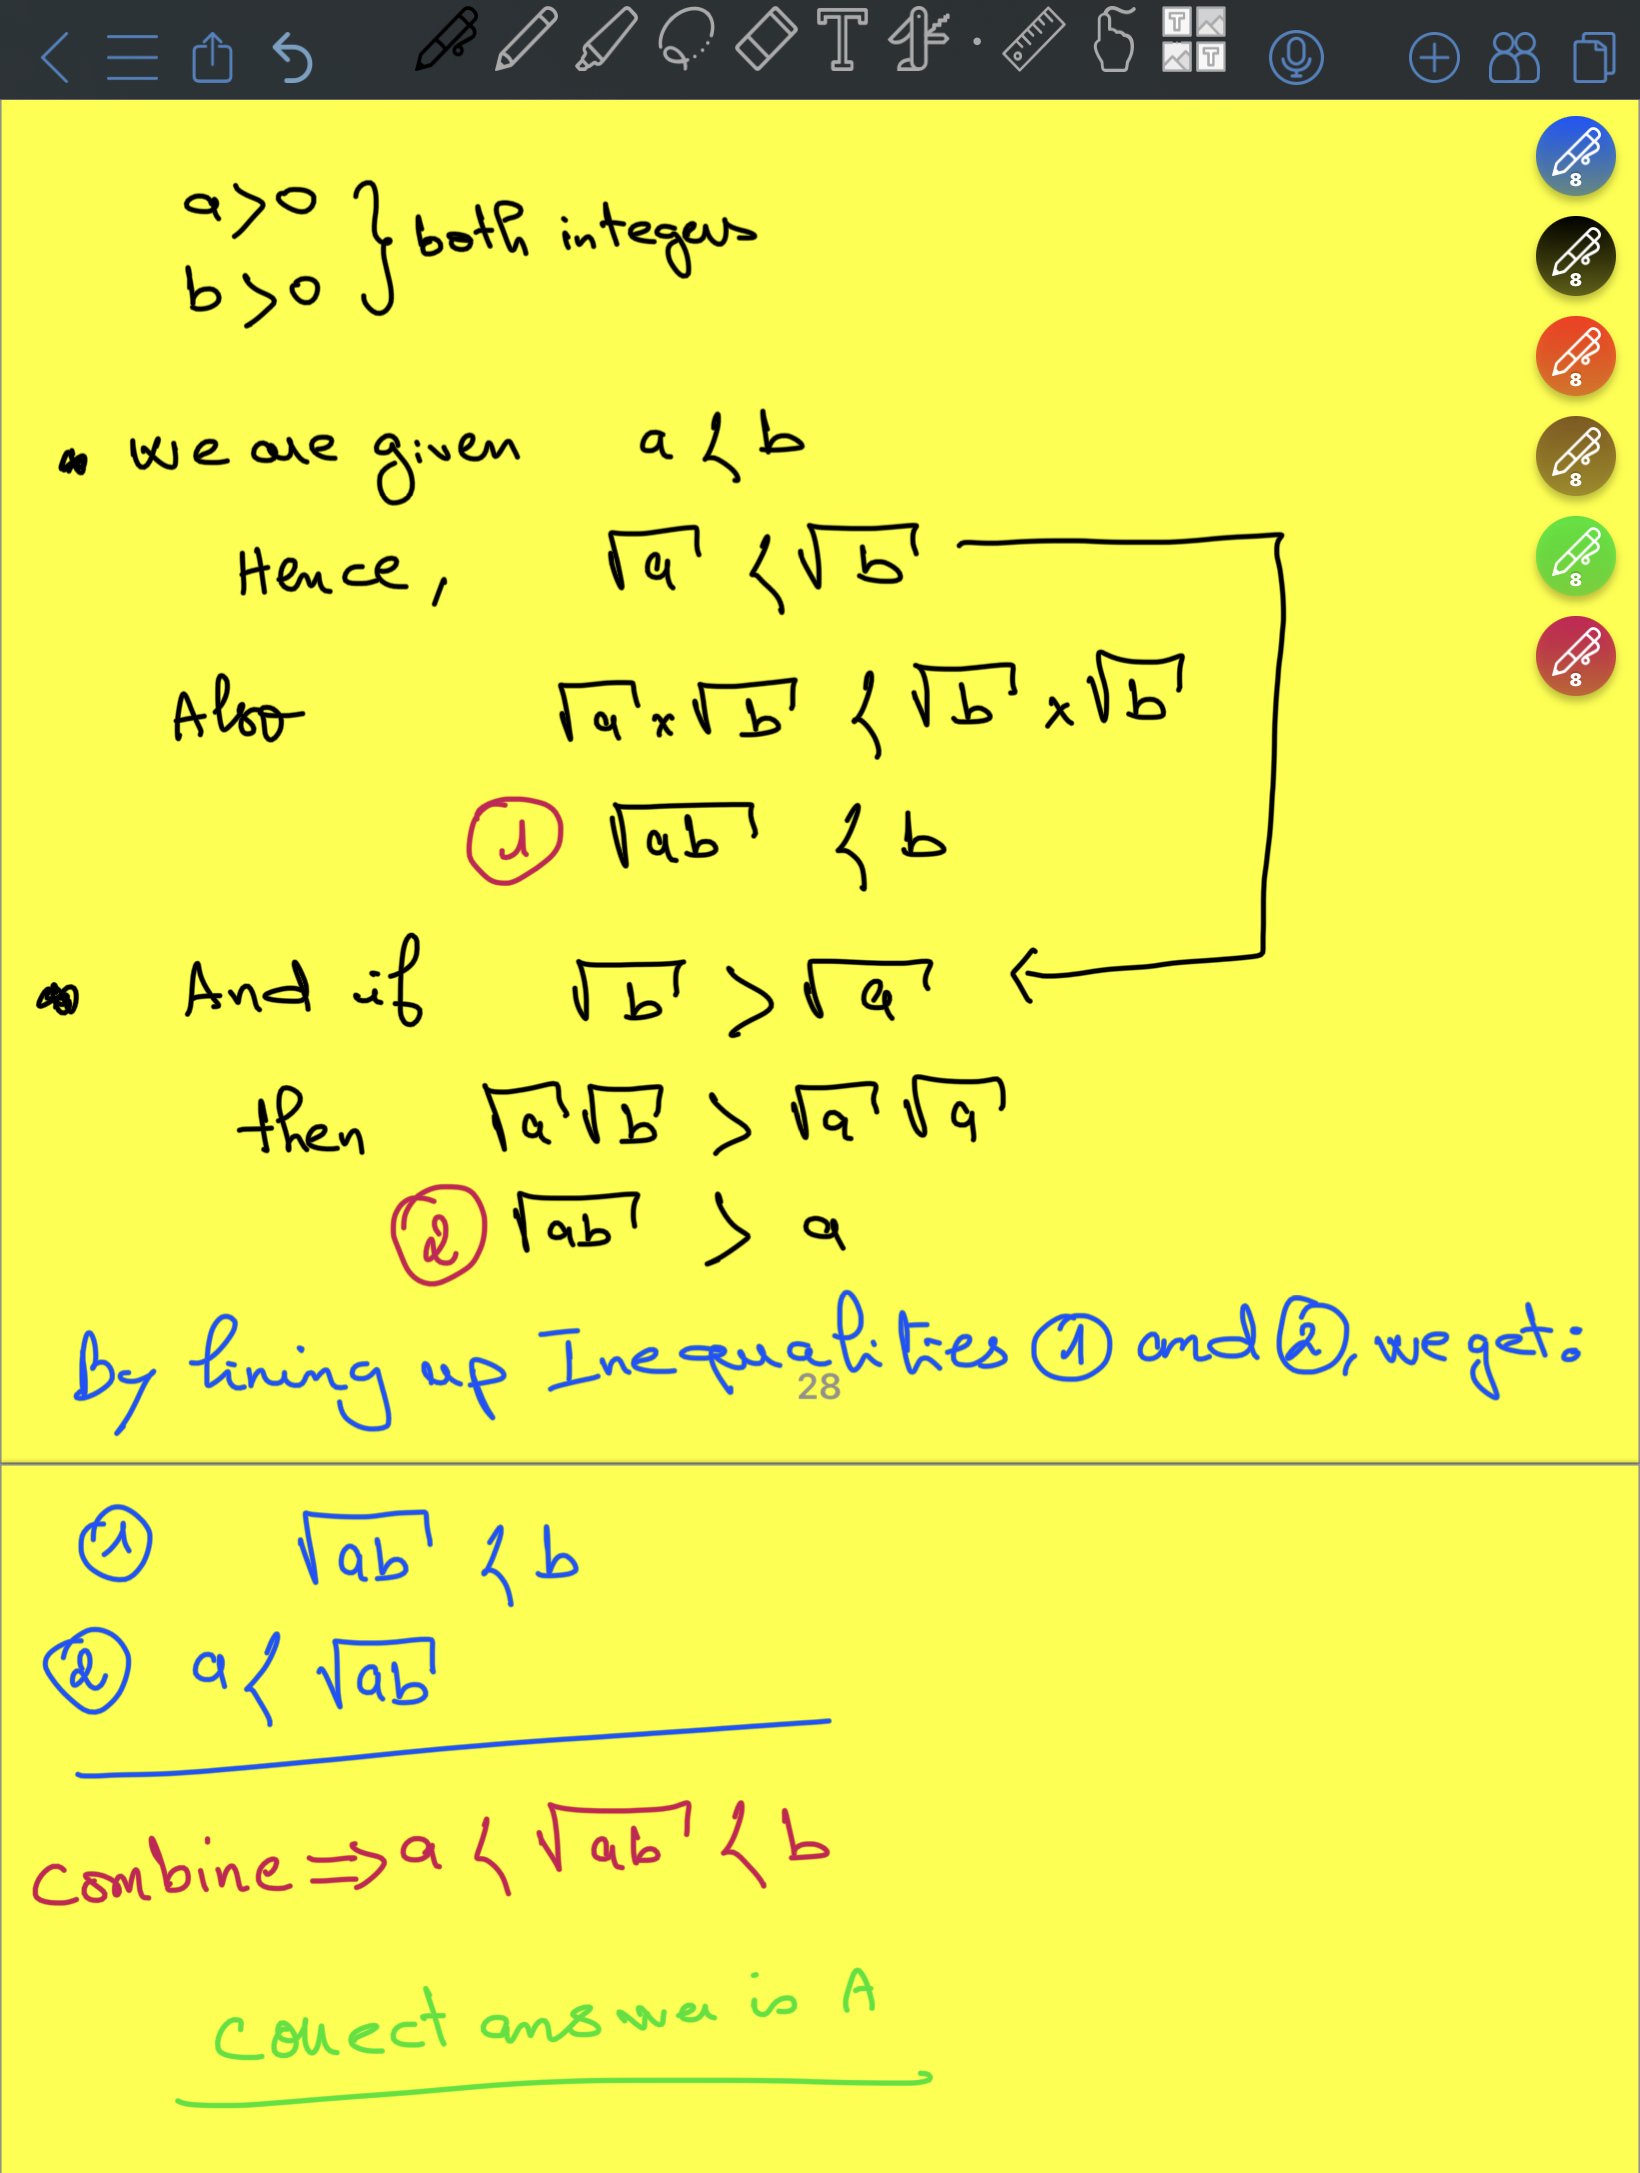 a>0
b>0 } both integers
We are given a < b
Hence, √a < √b
Also √a × √b < √b × √b
① √ab < b
And if √b > √a
then √a √b > √a √a
② √ab > a
By lining up Inequalities ① and ②, we get:
28
① √ab < b
② a < √ab
Combine ⇒ a < √ab < b
Correct answer is A
8
8
8
8
8
8